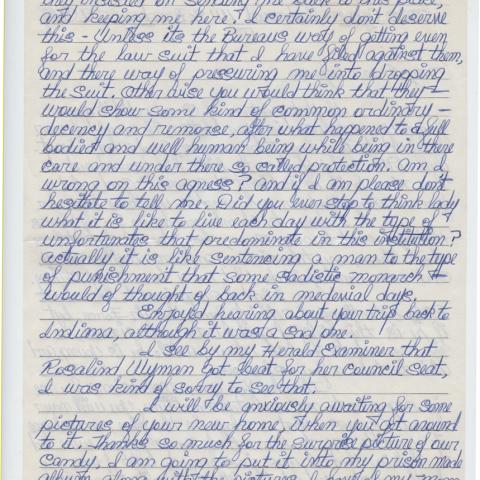 they insisted on sending me back to this place,
and keeping me here? I certainly don't deserve
this - Unless its the Bureaus way of getting even
for the law suit that I have filed against them,
and there way of pressuring me into dropping
the suit. Other wise you would think that they -
would show some kind of common ordinary -
decency and remorse, after what happened to a full
bodied and well human being while being in there
care and under there so called protection. Am I
wrong on this agness? And if I am please don't
hesitate to tell me. Did you ever stop to think lady
what it is like to live each day with the type of
unfortunates that predominate in this institution?
Actually it is like sentencing a man to the type
of punishment that some sadistic monarch
would of thought of back in medevial days.
Enjoyed hearing about your trip back to
Indiana, although it was a sad one.
I see by my Herald Examiner that
Rosalind Wyman got beat for her council seat,
I was kind of sorry to see that.
I will be anxiously awaiting for some
pictures of your new home, when you get around
to it. Thanks so much for the surprise picture of our
Candy. I am going to put it into my prison made
album along with the pictures I have of my mom